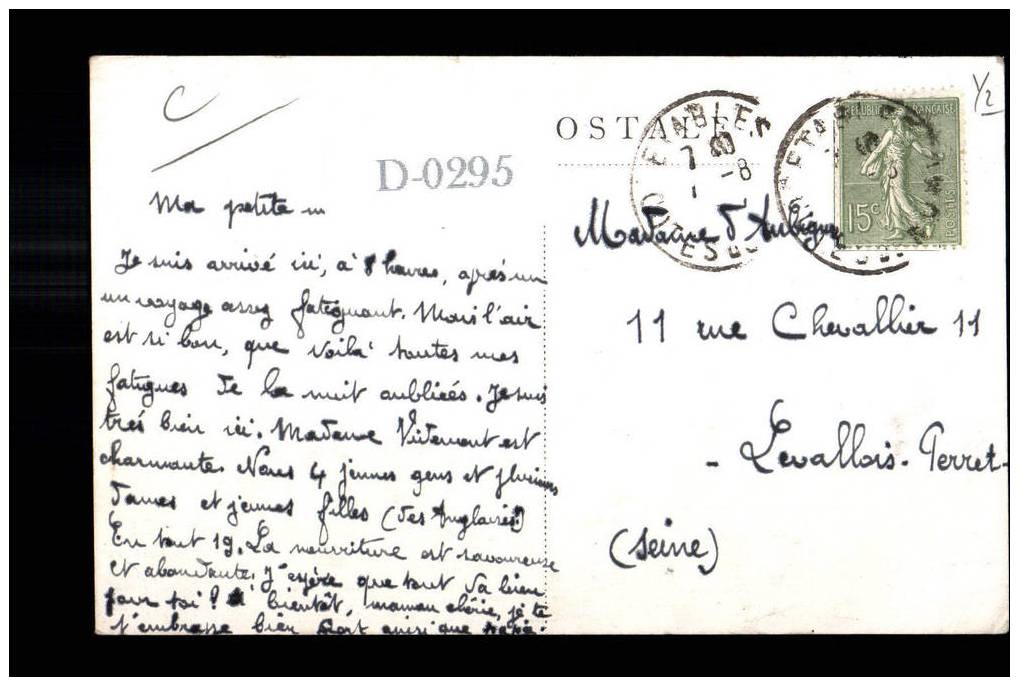 C
1/2
OSTALE
D-0295
ETABLES
7 30
1 -8
COTES DU
ETABLES
COTES DU NORD
REPUBLIQUE FRANÇAISE
15c
POSTES
Ma petite m
Je suis arrivé ici, à 8 heures, après un
un voyage assez fatiguant. Mais l'air
est si bon, que voilà toutes mes
fatigues de la nuit oubliées. Je suis
très bien ici. Madame est
charmante. Nous 4 jeunes gens et plusieurs
dames et jeunes filles (des Anglaises)
En tout 19. La nourriture est savoureuse
et abondante. J'espère que tout va bien
pour toi? A bientôt, maman chérie, je te
t'embrasse bien fort ainsi que
Madame d'Aubigny
11 rue Chevallier 11
- Levallois-Perret-
(Seine)